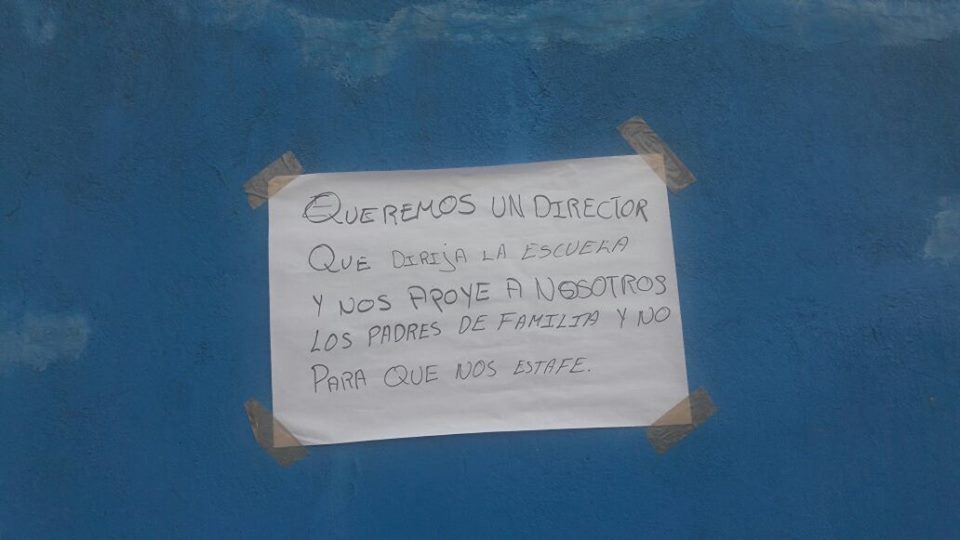 QUEREMOS UN DIRECTOR
QUE DIRIJA LA ESCUELA
Y NOS APOYE A NOSOTROS
LOS PADRES DE FAMILIA Y NO
PARA QUE NOS ESTAFE.